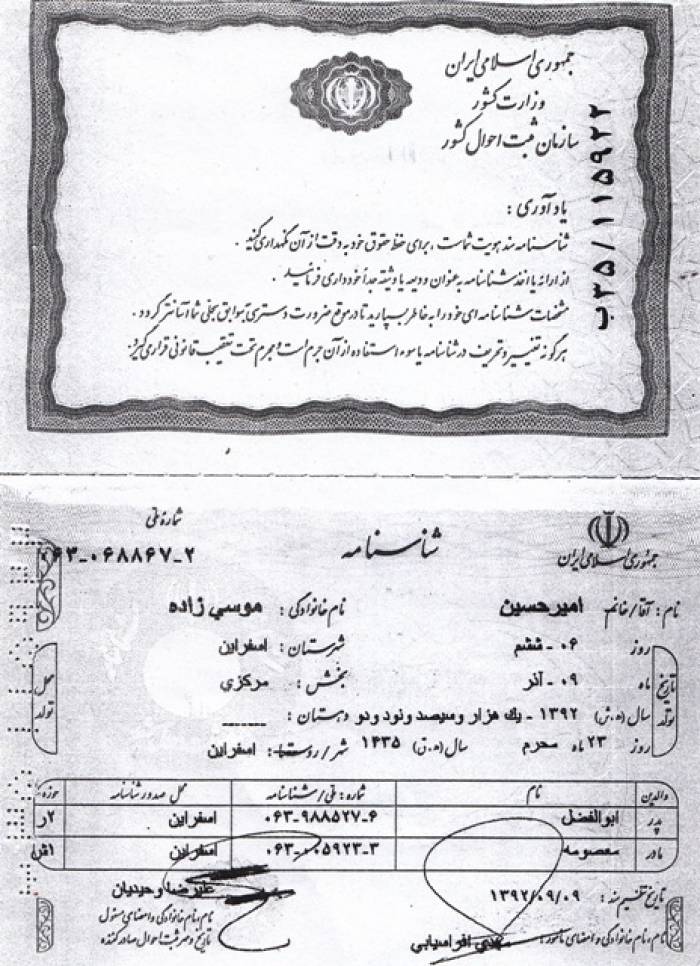 جمهوری اسلامی ایران
وزارت کشور
سازمان ثبت احوال کشور
ب۲۵/۱۱۵۹۲۲
یادآوری :
شناسنامه سند هویت شماست ، برای حفظ حقوق خود به دقت از آن نگهداری کنید .
از ارائه یا اخذ شناسنامه به عنوان ودیعه یا وثیقه جداً خودداری فرمائید .
مشخصات شناسنامه ای خود را به خاطر بسپارید تا در موقع ضرورت دسترسی به سوابق سجلی شما آسانتر گردد .
هرگونه تغییر و تحریف در شناسنامه یا سوء استفاده از آن جرم است و مجرم تحت تعقیب قانونی قرار می گیرد .
جمهوری اسلامی ایران
شناسنامه
شماره ملی
۰۶۳-۰۶۸۸۶۷-۲
نام : آقا/خانم امیرحسین نام خانوادگی : موسي زاده
تاریخ تولد
روز ۰۶ - ششم شهرستان : اسفراین
ماه ۰۹ - آذر بخش : مرکزي
سال (ه.ش) ۱۳۹۲ - یك هزار وسیصد ونود ودو دهستان : ------
روز ۲۳ ماه محرم سال (ه.ق) ۱۴۳۵ شهر/روستا : اسفراین
محل تولد
والدین نام شماره : ملی/شناسنامه محل صدور شناسنامه حوزه
پدر ابوالفضل ۰۶۳-۹۸۸۵۲۷-۶ اسفراین ۲ر
مادر معصومه ۰۶۳-۰۰۵۹۲۳-۳ اسفراین ۱ش
تاریخ تنظیم سند : ۱۳۹۲/۰۹/۰۹ علیرضا وحیدیان
نام ، نام خانوادگی و امضای مامور : مهدي افراسیابي
نام ، نام خانوادگی و امضای مسئول
تاریخ و مهر ثبت احوال صادرکننده